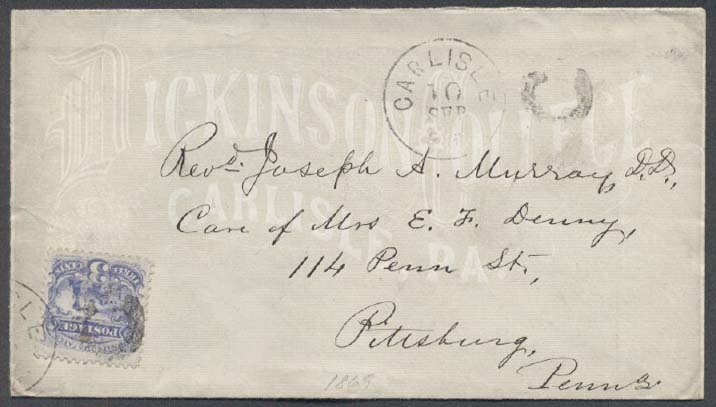 DICKINSON COLLEGE
CARLISLE, PA
CARLISLE
10
SEP
Revd. Joseph A. Murray, D.D.,
Care of Mrs E. F. Denny,
114 Penn St.,
Pittsburg,
Penna
POSTAGE
3
LE
1869